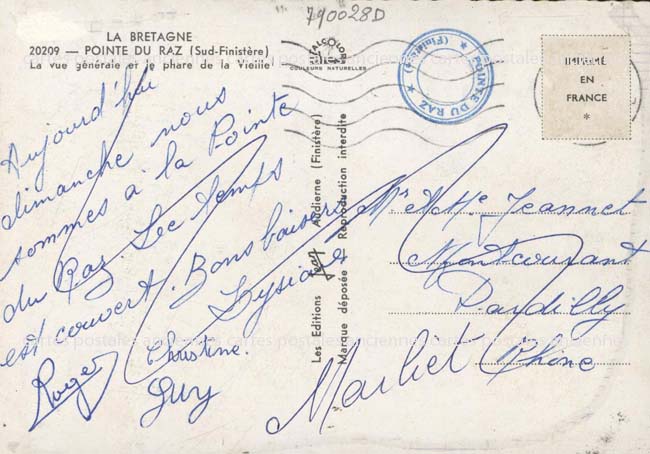 790028D
LA BRETAGNE
20209 — POINTE DU RAZ (Sud-Finistère)
La vue générale et le phare de la Vieille
COULEURS NATURELLES
★ POINTE DU RAZ ★
(Finistère)
IMPRIMÉ
EN
FRANCE
*
Aujourd'hui
dimanche nous
sommes à la Pointe
du Raz. Le temps
est couvert. Bons baisers
Lysiane
Roger Christine.
Guy
Les Editions Jean Audierne (Finistère)
Marque déposée Reproduction interdite
Mr et Mme Jeannet
Montcourant
Dardilly
Rhône
cartes postales anciennes